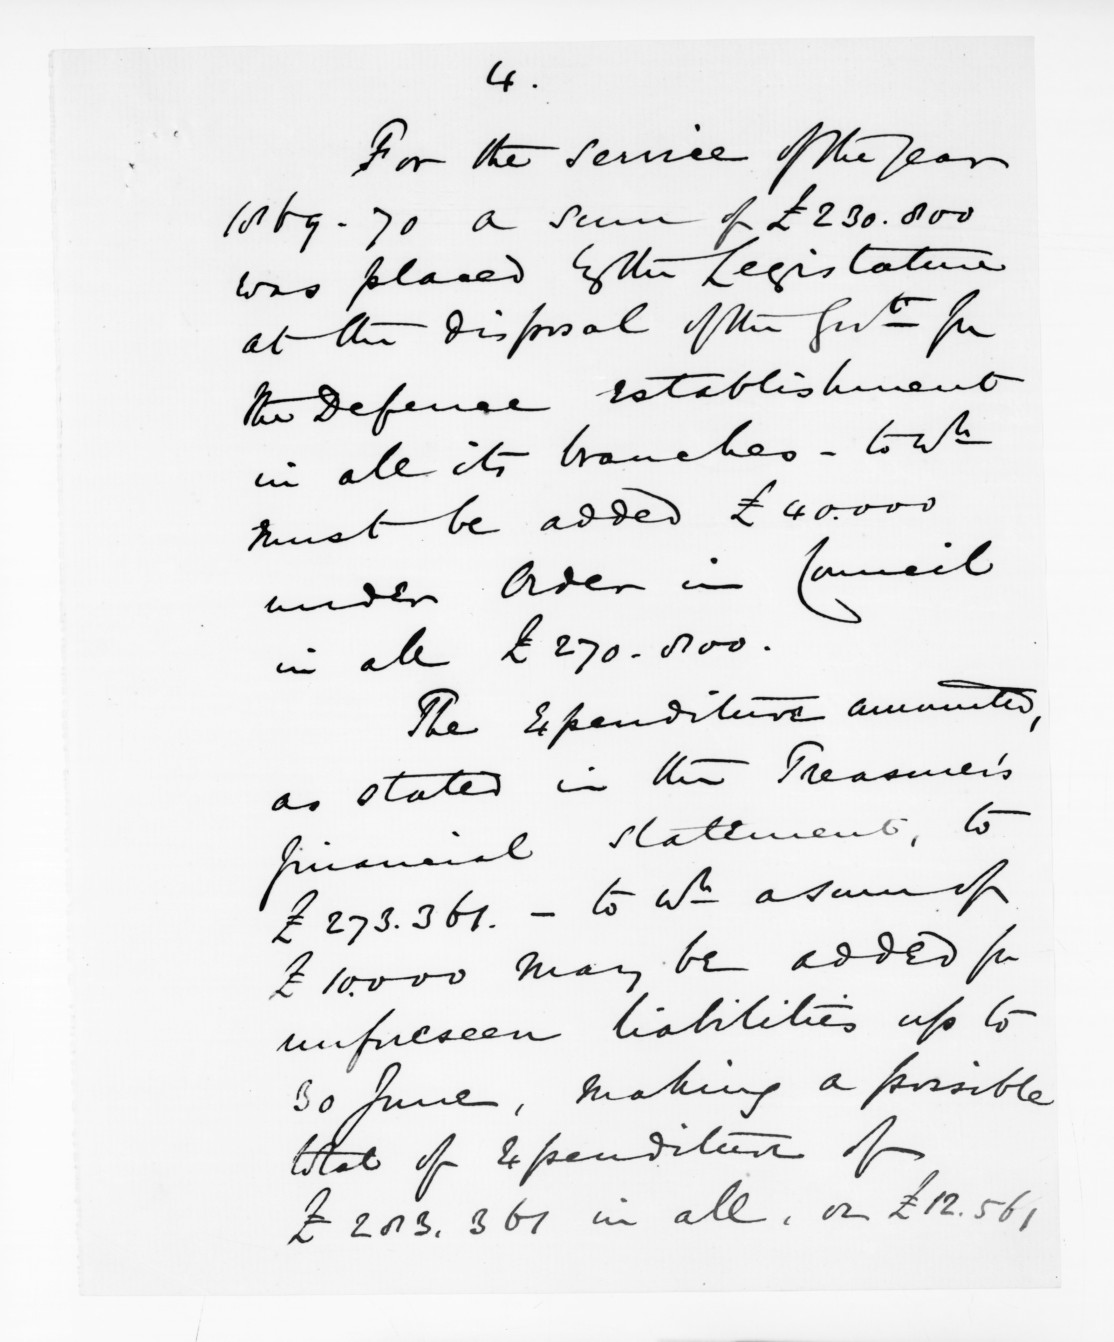 4.
For the service of the year
1869-70 a sum of £230.800
was placed by the Legislature
at the disposal of the Govt for
the Defence Establishment
in all its branches - to wh
must be added £40.000
under Order in Council
in all £270.800.
The Expenditure amounted,
as stated in the Treasurer's
financial statement, to
£273.361. - to wh a sum of
£10.000 may be added for
unforeseen liabilities up to
30 June, making a possible
total of Expenditure of
£283.361 in all, or £12.561